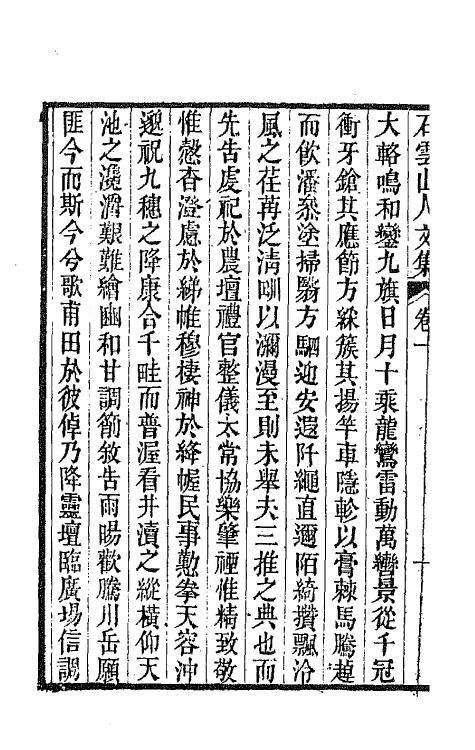 石雲山人文集 卷一 十
大輅鳴和鑾九旗日月十乘龍鸞雷動萬轡景從千冠
衝牙鎗其應節方綵簇其揚竿車隱軫以膏棘馬騰趠
而飲潘黍塗掃翳方駟迆安遐阡繩直邇陌綺攢飄泠
風之荏苒泛清甽以瀰漫至則未舉夫三推之典也而
先告虔祀於農壇禮官整儀太常協樂肇禋惟精致敬
惟慤杳澄慮於綈帷穆棲神於絳幄民事懃拳天容沖
邈祝九穗之降康合千畦而普渥看井瀆之縱橫仰天
池之瀺灂艱難繪豳和甘調籥敘告雨暘歡騰川岳願
匪今而斯今兮歌甫田於彼倬乃降靈壇臨廣場信調